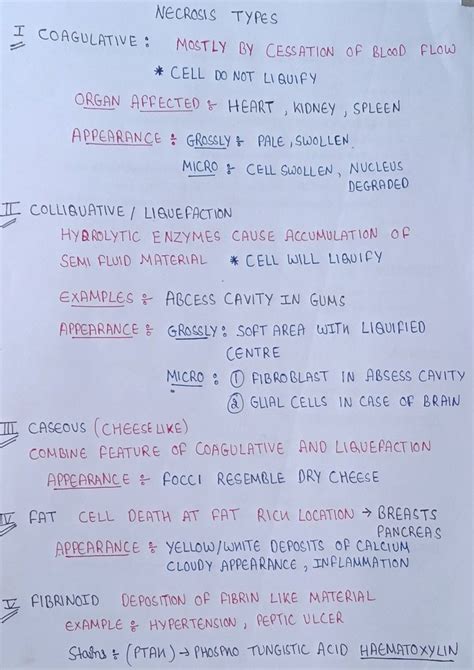 NECROSIS TYPES
I COAGULATIVE : MOSTLY BY CESSATION OF BLOOD FLOW
* CELL DO NOT LIQUIFY
ORGAN AFFECTED : HEART, KIDNEY, SPLEEN
APPEARANCE : GROSSLY : PALE, SWOLLEN
MICRO : CELL SWOLLEN, NUCLEUS
DEGRADED
II COLLIQUATIVE / LIQUEFACTION
HYDROLYTIC ENZYMES CAUSE ACCUMULATION OF
SEMI FLUID MATERIAL * CELL WILL LIQUIFY
EXAMPLES : ABCESS CAVITY IN GUMS
APPEARANCE : GROSSLY : SOFT AREA WITH LIQUIFIED
CENTRE
MICRO : ① FIBROBLAST IN ABSESS CAVITY
② GLIAL CELLS IN CASE OF BRAIN
III CASEOUS (CHEESE LIKE)
COMBINE FEATURE OF COAGULATIVE AND LIQUEFACTION
APPEARANCE : FOCCI RESEMBLE DRY CHEESE
IV FAT CELL DEATH AT FAT RICH LOCATION → BREASTS
PANCREAS
APPEARANCE : YELLOW/WHITE DEPOSITS OF CALCIUM
CLOUDY APPEARANCE, INFLAMMATION
V FIBRINOID DEPOSITION OF FIBRIN LIKE MATERIAL
EXAMPLE : HYPERTENSION, PEPTIC ULCER
Stains : (PTAH) → PHOSPHO TUNGISTIC ACID HAEMATOXYLIN